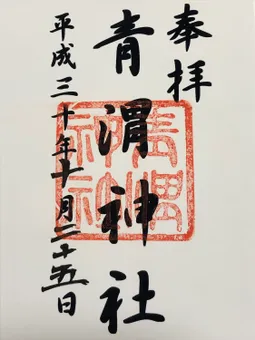 奉拝
青渭神社
平成三十年十月二十五日
青渭
神社